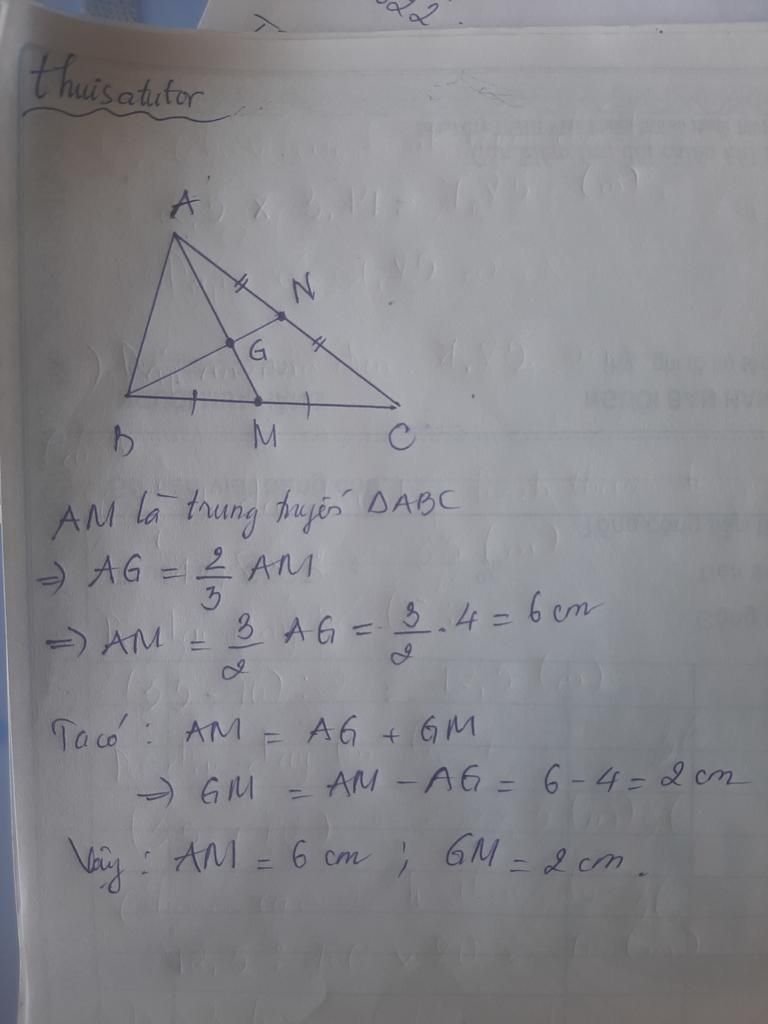 022.
thuisatutor
A
N
G
B
M
C
AM là trung tuyến ΔABC
=> AG = 2/3 AM
=> AM = 3/2 AG = 3/2 . 4 = 6 cm
Ta có : AM = AG + GM
=> GM = AM - AG = 6 - 4 = 2 cm
Vậy : AM = 6 cm ; GM = 2 cm .